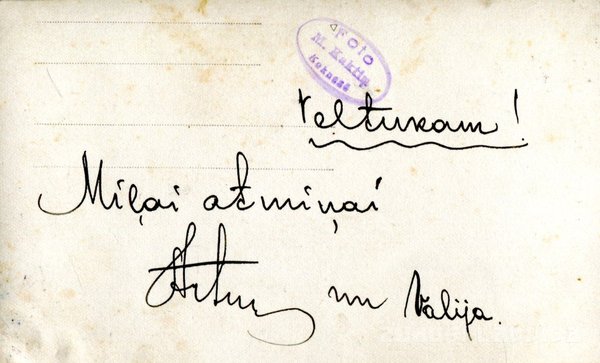 Foto
M. Kaktiņ
Koknesē
Veltījam!
Miļai atmiņai
Arturs un Valija.